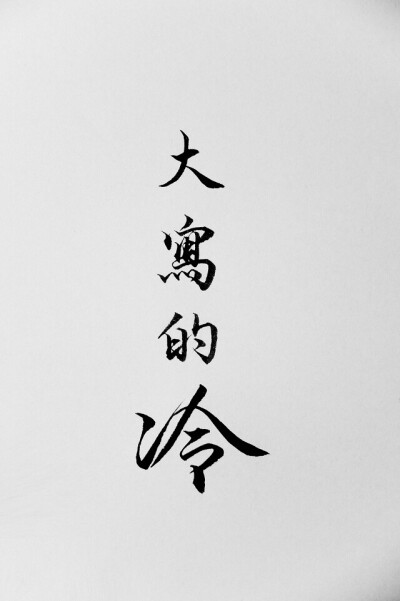 大寫的冷